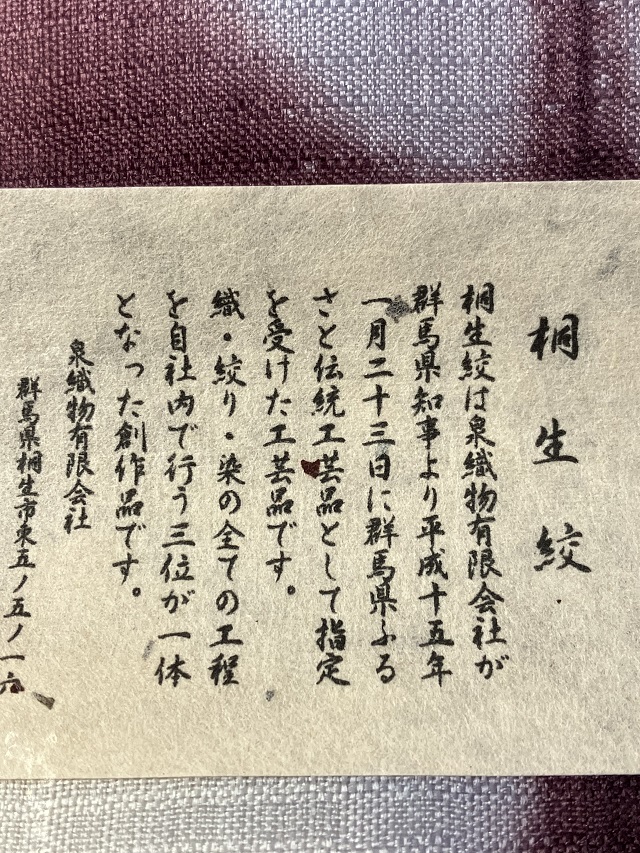 桐生絞
桐生絞は泉織物有限会社が
群馬県知事より平成十五年
一月二十三日に群馬県ふる
さと伝統工芸品として指定
を受けた工芸品です。
織・絞り・染の全ての工程
を自社内で行う三位が一体
となった創作品です。
泉織物有限会社
群馬県桐生市東五ノ五ノ一六